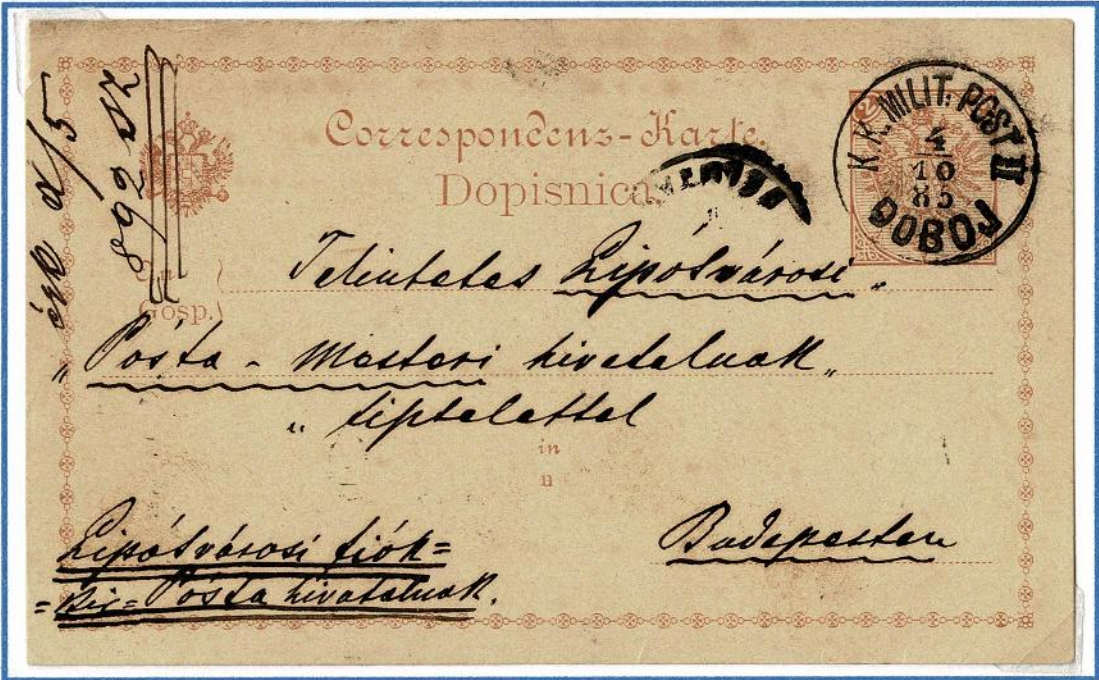 Correspondenz-Karte.
Dopisnica
K. K. MILIT: POST II
4
10
85
DOBOJ
2
érk
892 sz
Gosp.
Tekintetes Lipótvárosi
"Pósta - Mesteri hivatalnak„
" tiptelettel
in
u
Budapesten
Lipótvárosi fiók=
Pósta hivatalnak.